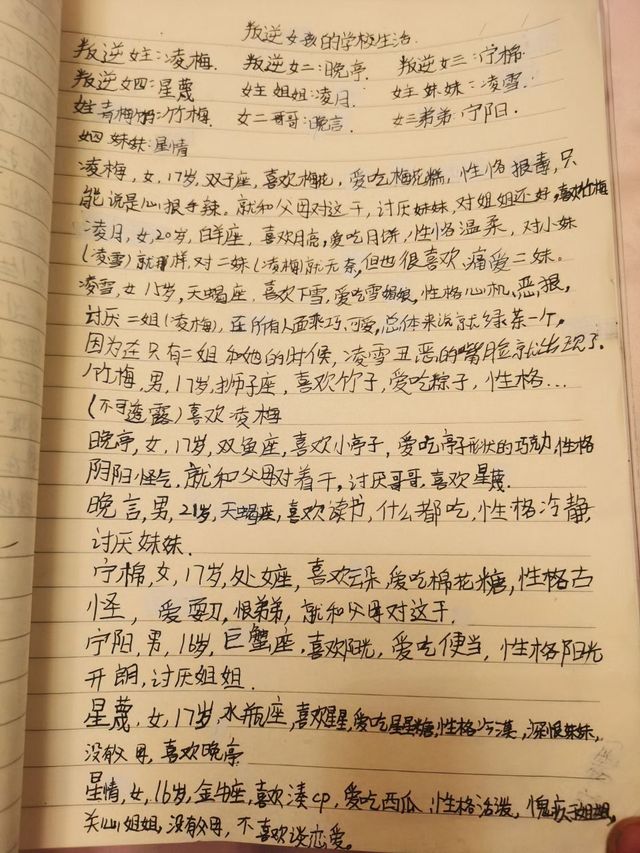 叛逆女孩的学校生活
叛逆女主:凌梅. 叛逆女二:晚亭. 叛逆女三:宁棉.
叛逆女四:星蔑. 女主姐姐:凌月. 女主妹妹:凌雪.
女主青梅竹马:竹梅. 女二哥哥:晚言. 女三弟弟:宁阳.
女四妹妹:星情
凌梅,女,17岁,双子座,喜欢梅花,爱吃梅花糕,性格狠毒,只
能说是心狠手辣.就和父母对这干,讨厌妹妹,对姐姐还好,喜欢竹梅
凌月,女,20岁,白羊座,喜欢月亮,爱吃月饼,性格温柔,对小妹
(凌雪)就那样,对二妹(凌梅)就无奈,但也很喜欢、痛爱二妹。
凌雪,女15岁,天蝎座,喜欢下雪,爱吃雪媚娘,性格心机、恶狠,
讨厌二姐(凌梅),在所有人面乖巧、可爱,总体来说就绿茶一个。
因为在只有二姐和她的时候,凌雪丑恶的嘴脸就出现了.
竹梅,男,17岁,狮子座,喜欢竹子,爱吃粽子,性格...
(不可透露)喜欢凌梅
晚亭,女,17岁,双鱼座,喜欢小亭子,爱吃亭子形状的巧克力,性格
阴阳怪气.就和父母对着干,讨厌哥哥,喜欢星蔑.
晚言,男,21岁,天蝎座,喜欢读书,什么都吃,性格冷静,
讨厌妹妹.
宁棉,女,17岁,处女座,喜欢云朵,爱吃棉花糖,性格古
怪,爱耍刀,恨弟弟,就和父母对这干.
宁阳,男,16岁,巨蟹座,喜欢阳光,爱吃便当,性格阳光
开朗,讨厌姐姐.
星蔑,女,17岁,水瓶座,喜欢星星,爱吃星星糖,性格冷漠,深恨妹妹,
没有父母,喜欢晚亭
星情,女,16岁,金牛座,喜欢凑cp,爱吃西瓜,性格活泼,愧疚于姐姐,
关心姐姐,没有父母,不喜欢谈恋爱。